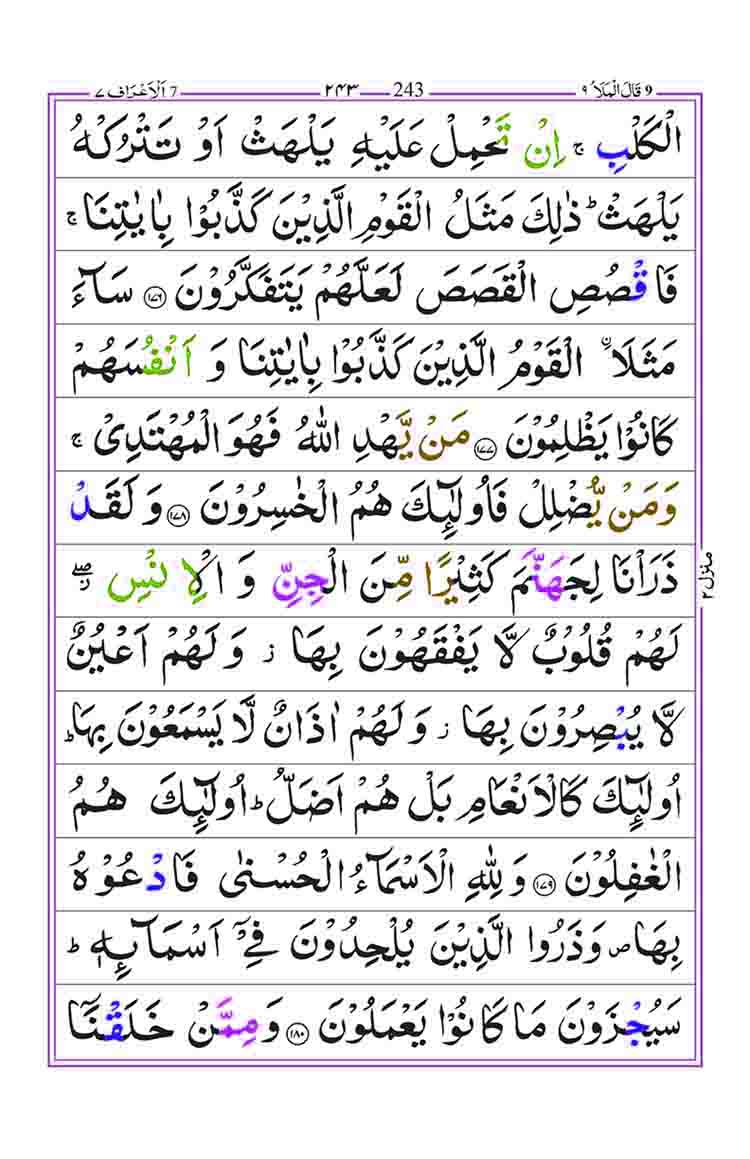 ٩ قَالَ الْمَلَاُ ٩ 243 ٢٤٣ 7 اَلْاَعْرَاف ٧
الْكَلْبِ ۚ اِنْ تَحْمِلْ عَلَيْهِ يَلْهَثْ اَوْ تَتْرُكْهُ
يَلْهَثْ ؕ ذٰلِكَ مَثَلُ الْقَوْمِ الَّذِيْنَ كَذَّبُوْا بِاٰيٰتِنَا ۚ
فَاقْصُصِ الْقَصَصَ لَعَلَّهُمْ يَتَفَكَّرُوْنَ ﴿١٧٦﴾ سَآءَ
مَثَلَاۨ الْقَوْمُ الَّذِيْنَ كَذَّبُوْا بِاٰيٰتِنَا وَ اَنْفُسَهُمْ
كَانُوْا يَظْلِمُوْنَ ﴿١٧٧﴾ مَنْ يَّهْدِ اللّٰهُ فَهُوَ الْمُهْتَدِىْ ۚ
وَمَنْ يُّضْلِلْ فَاُولٰٓئِكَ هُمُ الْخٰسِرُوْنَ ﴿١٧٨﴾ وَ لَقَدْ
ذَرَاْنَا لِجَهَنَّمَ كَثِيْرًا مِّنَ الْجِنِّ وَ الْاِنْسِ ۖ ز
لَهُمْ قُلُوْبٌ لَّا يَفْقَهُوْنَ بِهَا ز وَ لَهُمْ اَعْيُنٌ
لَّا يُبْصِرُوْنَ بِهَا ز وَ لَهُمْ اٰذَانٌ لَّا يَسْمَعُوْنَ بِهَا ؕ
اُولٰٓئِكَ كَالْاَنْعَامِ بَلْ هُمْ اَضَلُّ ؕ اُولٰٓئِكَ هُمُ
الْغٰفِلُوْنَ ﴿١٧٩﴾ وَ لِلّٰهِ الْاَسْمَآءُ الْحُسْنٰى فَادْعُوْهُ
بِهَا ص وَ ذَرُوا الَّذِيْنَ يُلْحِدُوْنَ فِىْۤ اَسْمَآئِهٖ ؕ
سَيُجْزَوْنَ مَا كَانُوْا يَعْمَلُوْنَ ﴿١٨٠﴾ وَ مِمَّنْ خَلَقْنَاۤ
منزل ٢